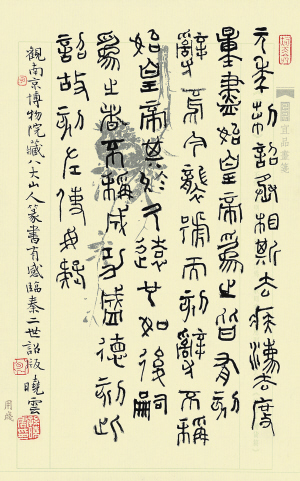 元年制詔丞相斯去疾灋度
量盡始皇帝為之皆有刻
辭焉今襲號而刻辭不稱
始皇帝其於久遠也如後嗣
為之者不稱成功盛德刻此
詔故刻左使毋疑
觀南京博物院藏八大山人篆書有感臨秦二世詔版 曉雲
宜品畫箋
用箋